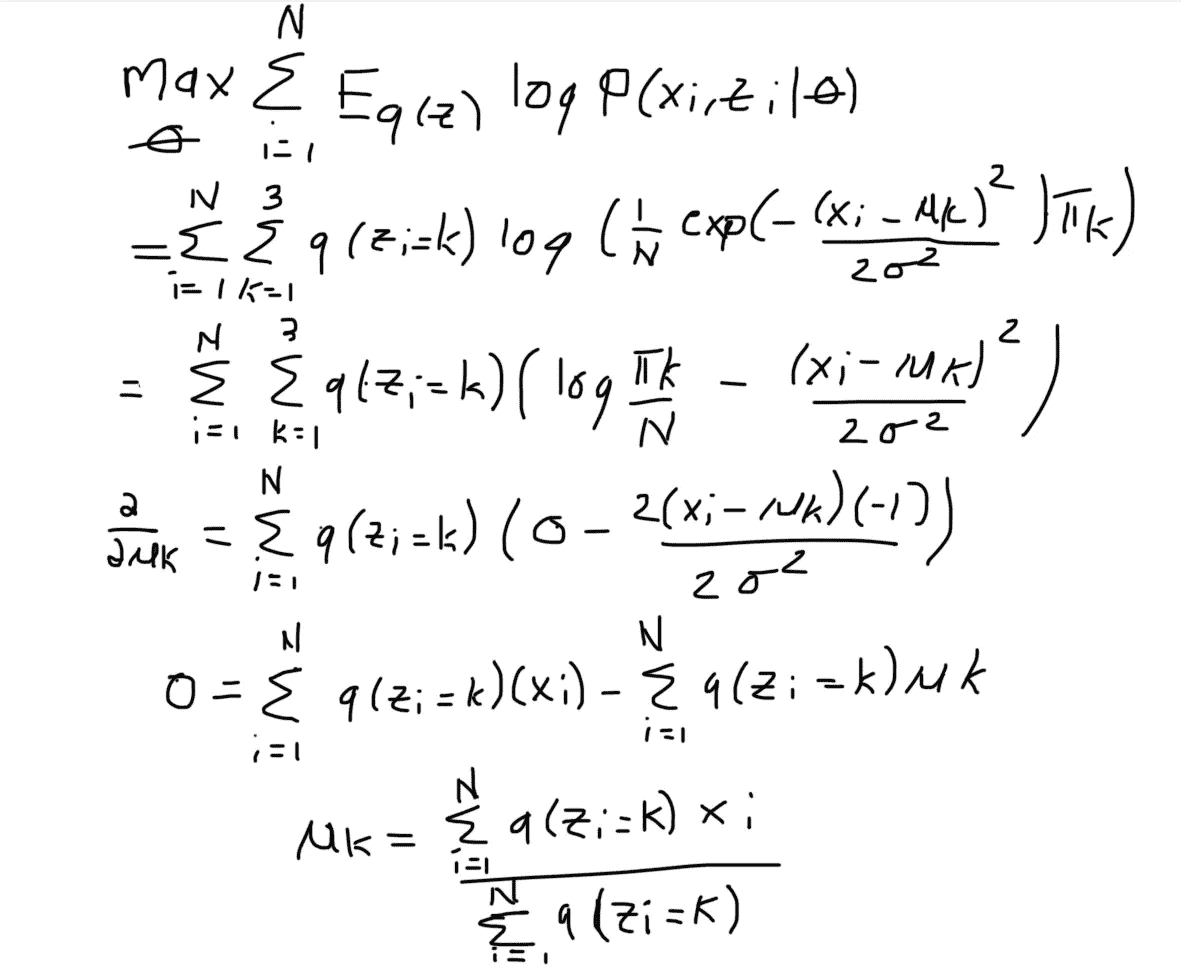 max_θ Σ_{i=1}^{N} E_{q(z)} log P(x_i, z_i|θ)
= Σ_{i=1}^{N} Σ_{k=1}^{3} q(z_i=k) log (1/N exp(- (x_i - μ_k)^2 / 2σ^2) π_k)
= Σ_{i=1}^{N} Σ_{k=1}^{3} q(z_i=k) (log π_k/N - (x_i - μ_k)^2 / 2σ^2)
∂/∂μ_k = Σ_{i=1}^{N} q(z_i=k) (0 - 2(x_i - μ_k)(-1) / 2σ^2)
0 = Σ_{i=1}^{N} q(z_i=k)(x_i) - Σ_{i=1}^{N} q(z_i=k) μ_k
μ_k = Σ_{i=1}^{N} q(z_i=k) x_i / Σ_{i=1}^{N} q(z_i=k)